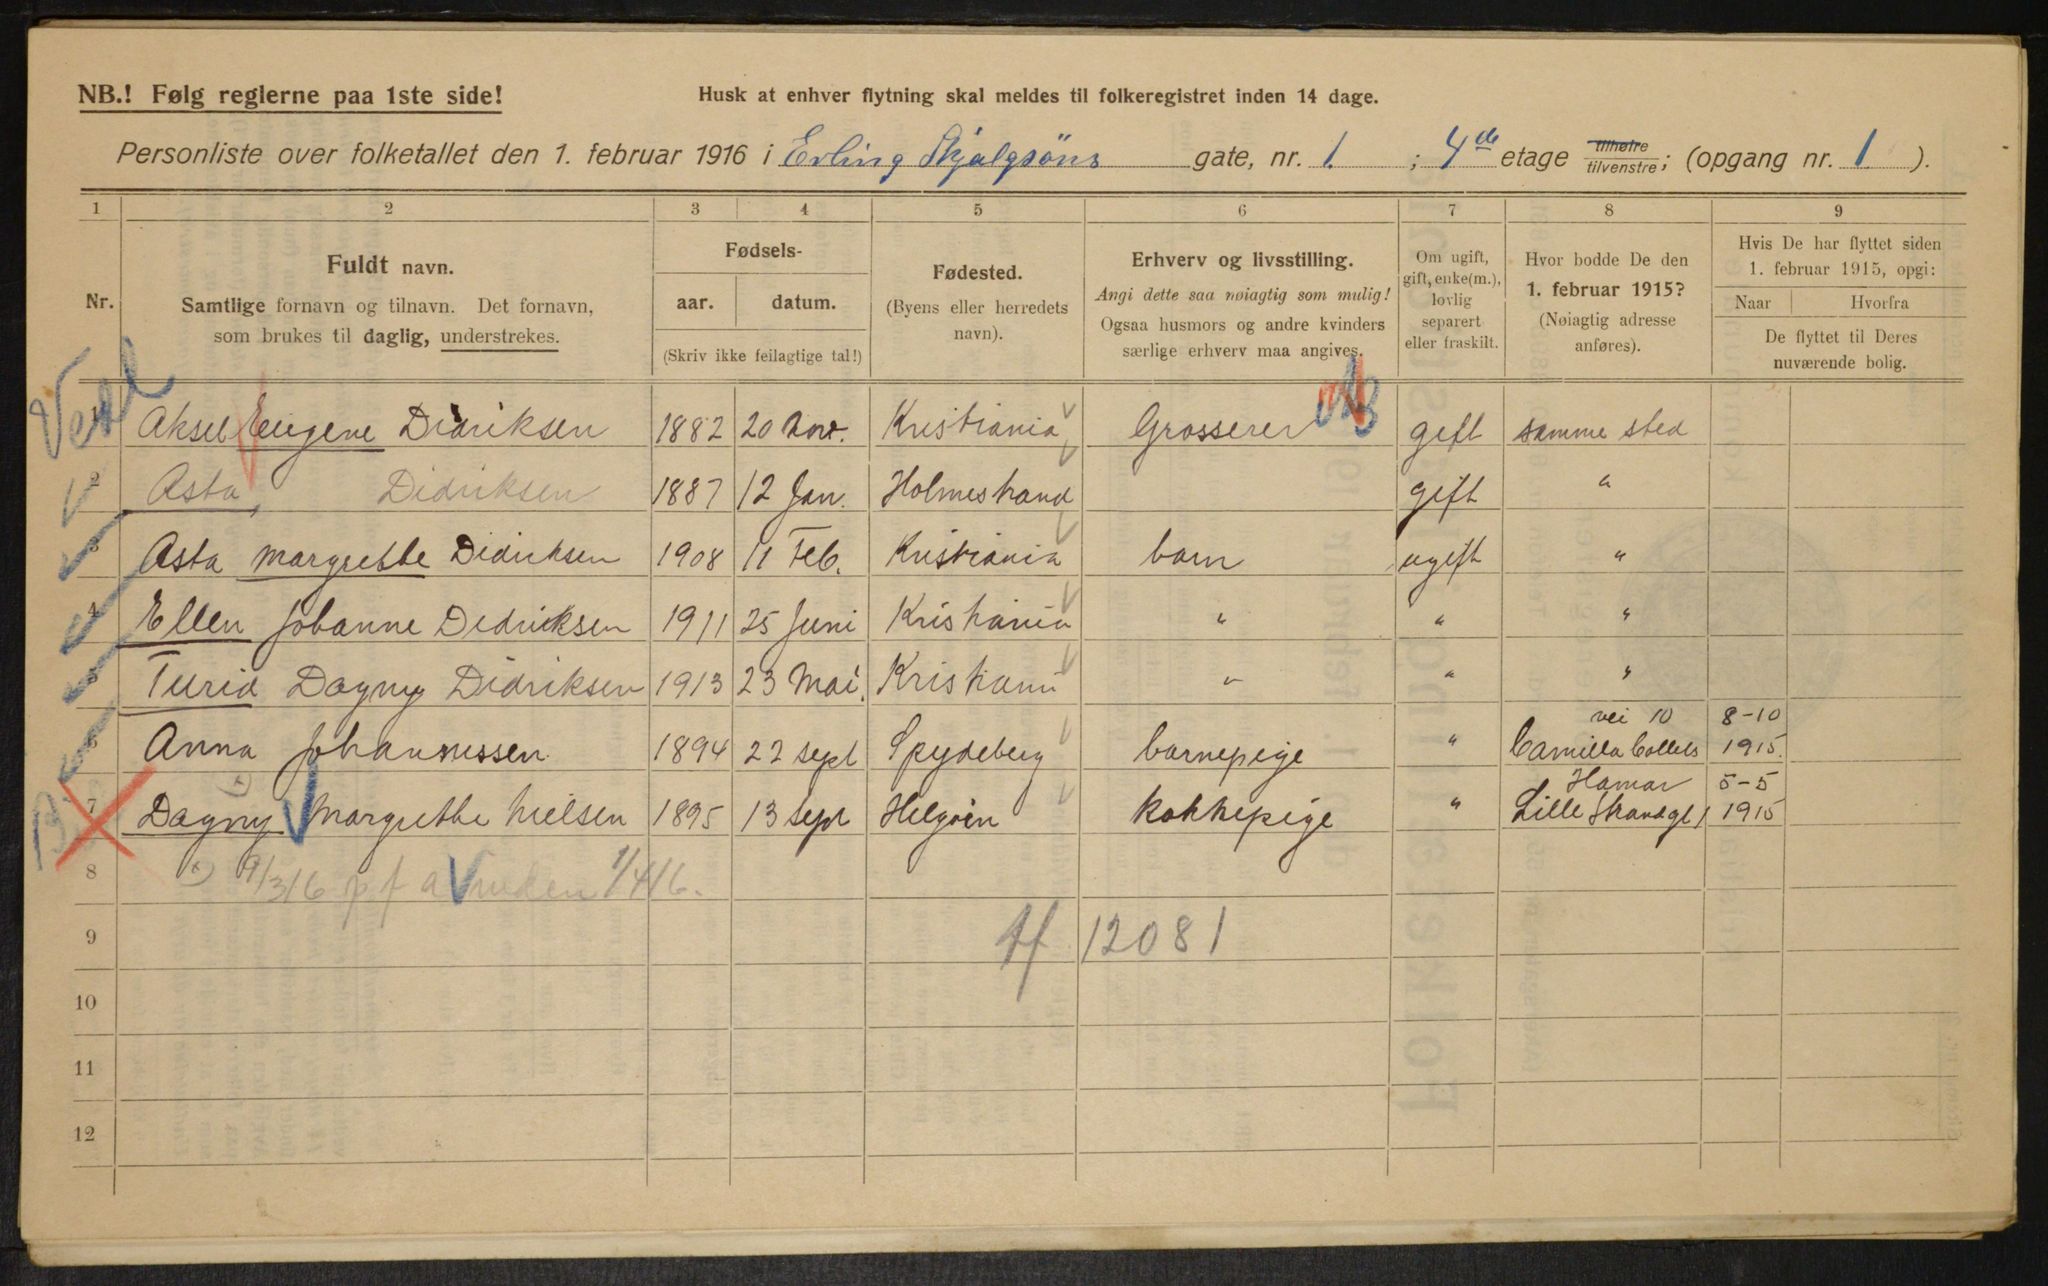 NB.! Følg reglerne paa 1ste side!
Husk at enhver flytning skal meldes til folkeregistret inden 14 dage.
Personliste over folketallet den 1. februar 1916 i Erling Skjalgsöns gate, nr. 1 ; 4de etage tilhøire tilvenstre; (opgang nr. 1 ).
1 2 3 4 5 6 7 8 9
Nr.
Fuldt navn.
Samtlige fornavn og tilnavn. Det fornavn,
som brukes til daglig, understrekes.
Fødsels-
aar. datum.
(Skriv ikke feilagtige tal!)
Fødested.
(Byens eller herredets
navn).
Erhverv og livsstilling.
Angi dette saa nøiagtig som mulig!
Ogsaa husmors og andre kvinders
særlige erhverv maa angives.
Om ugift,
gift, enke(m.),
lovlig
separert
eller fraskilt.
Hvor bodde De den
1. februar 1915?
(Nøiagtig adresse
anføres).
Hvis De har flyttet siden
1. februar 1915, opgi:
Naar Hvorfra
De flyttet til Deres
nuværende bolig.
1 Aksel Eugene Didriksen 1882 20 Nov. Kristiania Grosserer gift samme sted
2 Asta, Didriksen 1887 12 Jan. Holmestrand gift "
3 Asta Margrethe Didriksen 1908 11 Feb. Kristiania barn ugift "
4 Ellen Johanne Didriksen 1911 25 Juni Kristiania " " "
5 Turid Dagny Didriksen 1913 23 Mai. Kristiania " " "
vei 10 8-10
6 Anna Johannessen 1894 22 sept Spydeberg barnepige " Camilla Colletts 1915.
Hamar 5-5
7 Dagny Margrethe Nielsen 1895 13 sept Helgøen kokkepige " Lille Strandgt 1 1915
8 x) 9/3 16 p f a 1/4 16.
9 12081
10
11
12